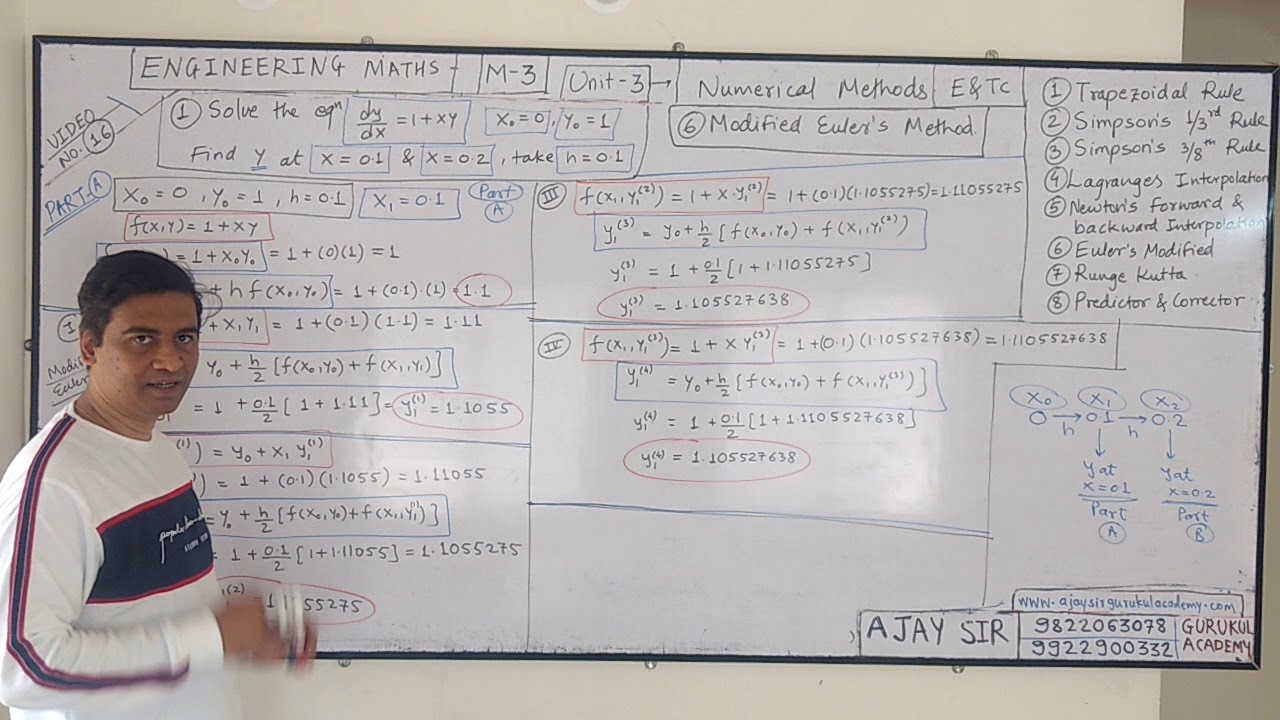 ENGINEERING MATHS - M-3 Unit-3 → Numerical Methods E&TC
VIDEO NO. 16
① Solve the eqn dy/dx = 1+xy x₀=0, y₀=1
Find y at x=0.1 & x=0.2, take h=0.1
⑥ Modified Euler's Method.
① Trapezoidal Rule
② Simpson's 1/3rd Rule
③ Simpson's 3/8th Rule
④ Lagranges Interpolation
⑤ Newton's forward &
backward Interpolation
⑥ Euler's Modified
⑦ Runge Kutta.
⑧ Predictor & Corrector
PART-A
x₀ = 0, y₀ = 1, h = 0.1 x₁ = 0.1 Part A
f(x,y) = 1 + xy
= 1+x₀y₀ = 1+(0)(1) = 1
+ h f(x₀,y₀) = 1+(0.1).(1) = 1.1
Modi
Euler
+ x₁ y₁ = 1+(0.1)(1.1) = 1.11
y₀ + h/2 [f(x₀,y₀) + f(x₁,y₁)]
= 1 + 0.1/2 [1 + 1.11] = y₁⁽¹⁾ = 1.1055
⁽¹⁾) = y₀ + x₁ y₁⁽¹⁾
) = 1 + (0.1)(1.1055) = 1.11055
= y₀ + h/2 [f(x₀,y₀)+f(x₁,y₁⁽¹⁾)]
= 1 + 0.1/2 [1+1.11055] = 1.1055275
⁽²⁾ = 1 55275
III f(x₁,y₁⁽²⁾) = 1 + x·y₁⁽²⁾ = 1+(0.1)(1.1055275)=1.11055275
y₁⁽³⁾ = y₀ + h/2 [f(x₀,y₀) + f(x₁,y₁⁽²⁾)]
y₁⁽³⁾ = 1 + 0.1/2 [1+1.11055275]
y₁⁽³⁾ = 1.105527638
IV f(x₁,y₁⁽³⁾) = 1 + x y₁⁽³⁾ = 1+(0.1)(1.105527638)=1.1105527638
y₁⁽⁴⁾ = y₀ + h/2 [f(x₀,y₀) + f(x₁,y₁⁽³⁾)]
y₁⁽⁴⁾ = 1 + 0.1/2 [1+1.1105527638]
y₁⁽⁴⁾ = 1.105527638
x₀ x₁ x₂
0 → 0.1 → 0.2
h h
y at x=0.1 Part A
y at x=0.2 Part B
www.ajaysirgurukulacademy.com
AJAY SIR
9822063078
9922900332
GURUKUL
ACADEMY